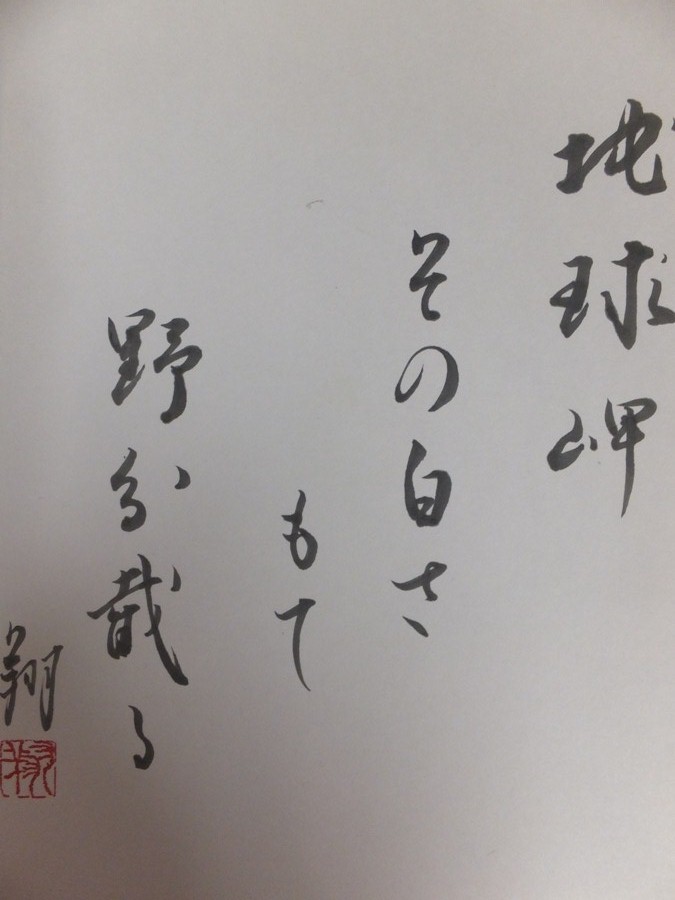 地球岬
その白さ
もて
野分截る
翔